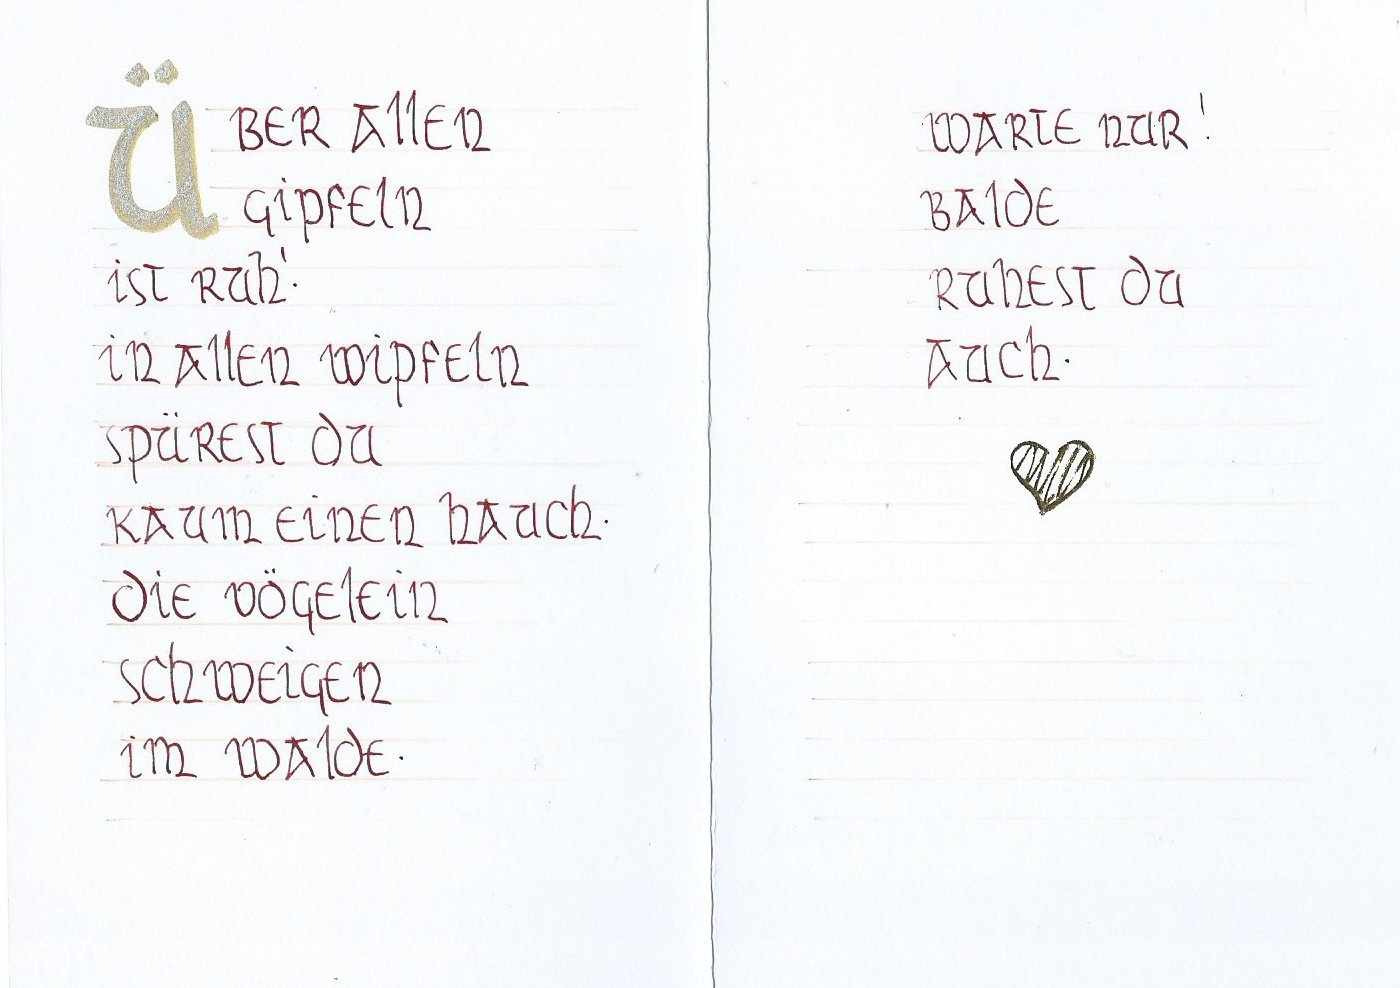 Über allen
Gipfeln
ist Ruh'.
in allen Wipfeln
spürest du
kaum einen Hauch.
die Vögelein
schweigen
im Walde.
Warte nur!
Balde
ruhest du
auch.